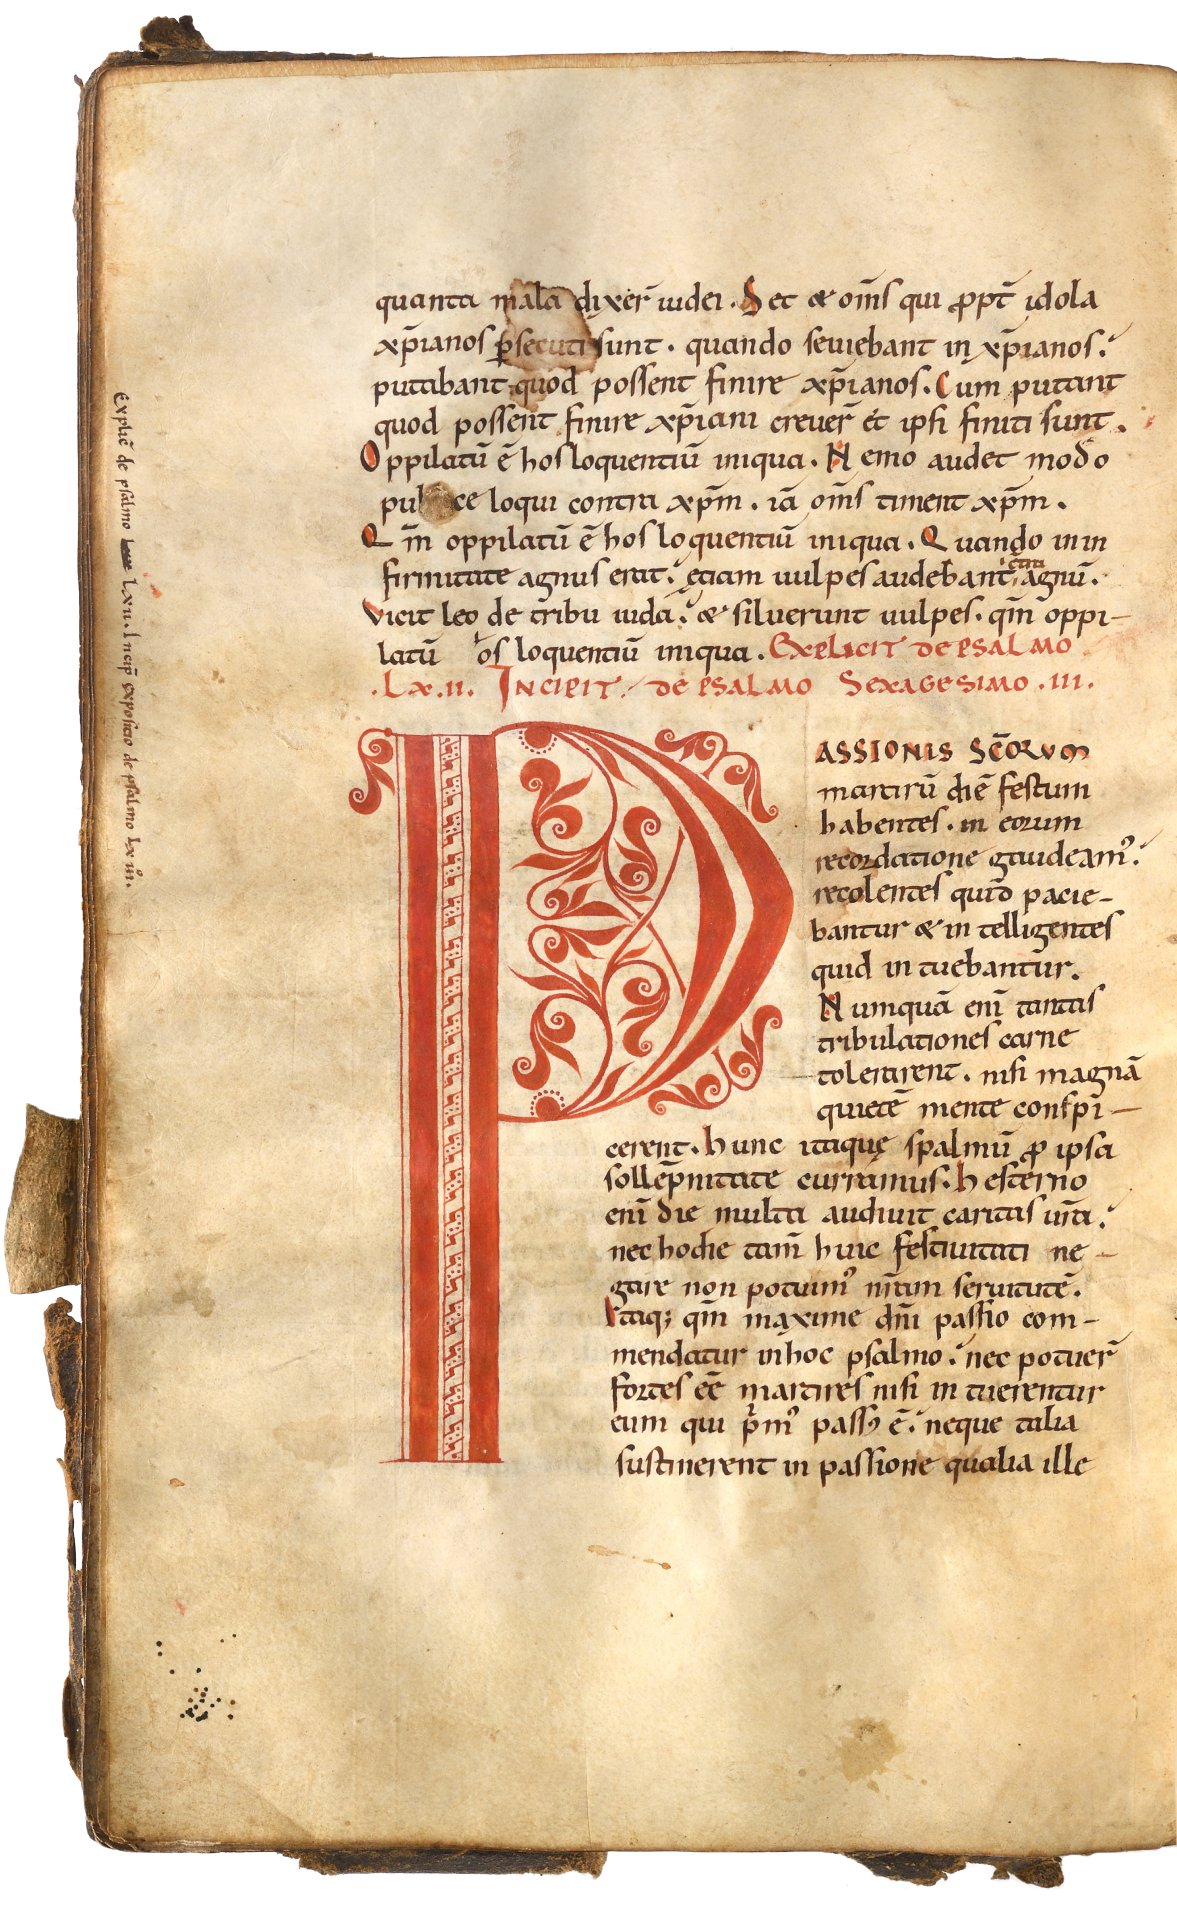 quanta mala dixer̄ iudei . Set & om̄s qui ꝓpt̄ idola
xp̄ianos ꝑsecuti sunt . quando seuiebant in xp̄ianos .
putabant quod possent finire xp̄ianos . Cum putant
quod possent finire xp̄iani creuer̄ et ipsi finiti sunt .
Oppilatū ē hos loquentiū iniqua . Nemo audet modo
pu ce loqui contra xp̄m . iā om̄s timent xp̄m .
Qm̄ oppilatū ē hos loquentiū iniqua . Quando in in
firmitate agnus erat . ętiam uulpes audebant agnū .
Vicit leo de tribu iuda . & siluerunt uulpes . qm̄ oppi-
latū os loquentiū iniqua . Explicit de psalmo
. Lx . ii . Incipit . de psalmo Sexagesimo . iii .
PASSIONIS SC̄ORUM
martirū diē festum
habentes . in eorum
recordatione gaudeamꝰ .
recolentes quid pacie-
bantur & intelligentes
quid intuebantur .
Numquā eni̅ tantas
tribulationes carne
tolerarent . nisi magnā
quietē mente conspi-
cerent . hunc itaquę spalmū ꝓ ipsa
sollēpnitate curramus . hesterno
eni̅ die multa audiuit caritas ur̄a .
nec hodie tam̄ huic festiuitati ne-
gare non potuimꝰ nr̄am seruitutē .
Itaq; qm̄ maxime dn̄i passio com-
mendatur in hoc psalmo . nec potuer̄
fortes eē martires nisi intuerentur
eum qui p̄mꝰ passꝰ ē . neque talia
sustinerent in passione qualia ille
Explic̄ de psalmo Lxii . Incip̄ expositio de psalmo Lx iiiº .